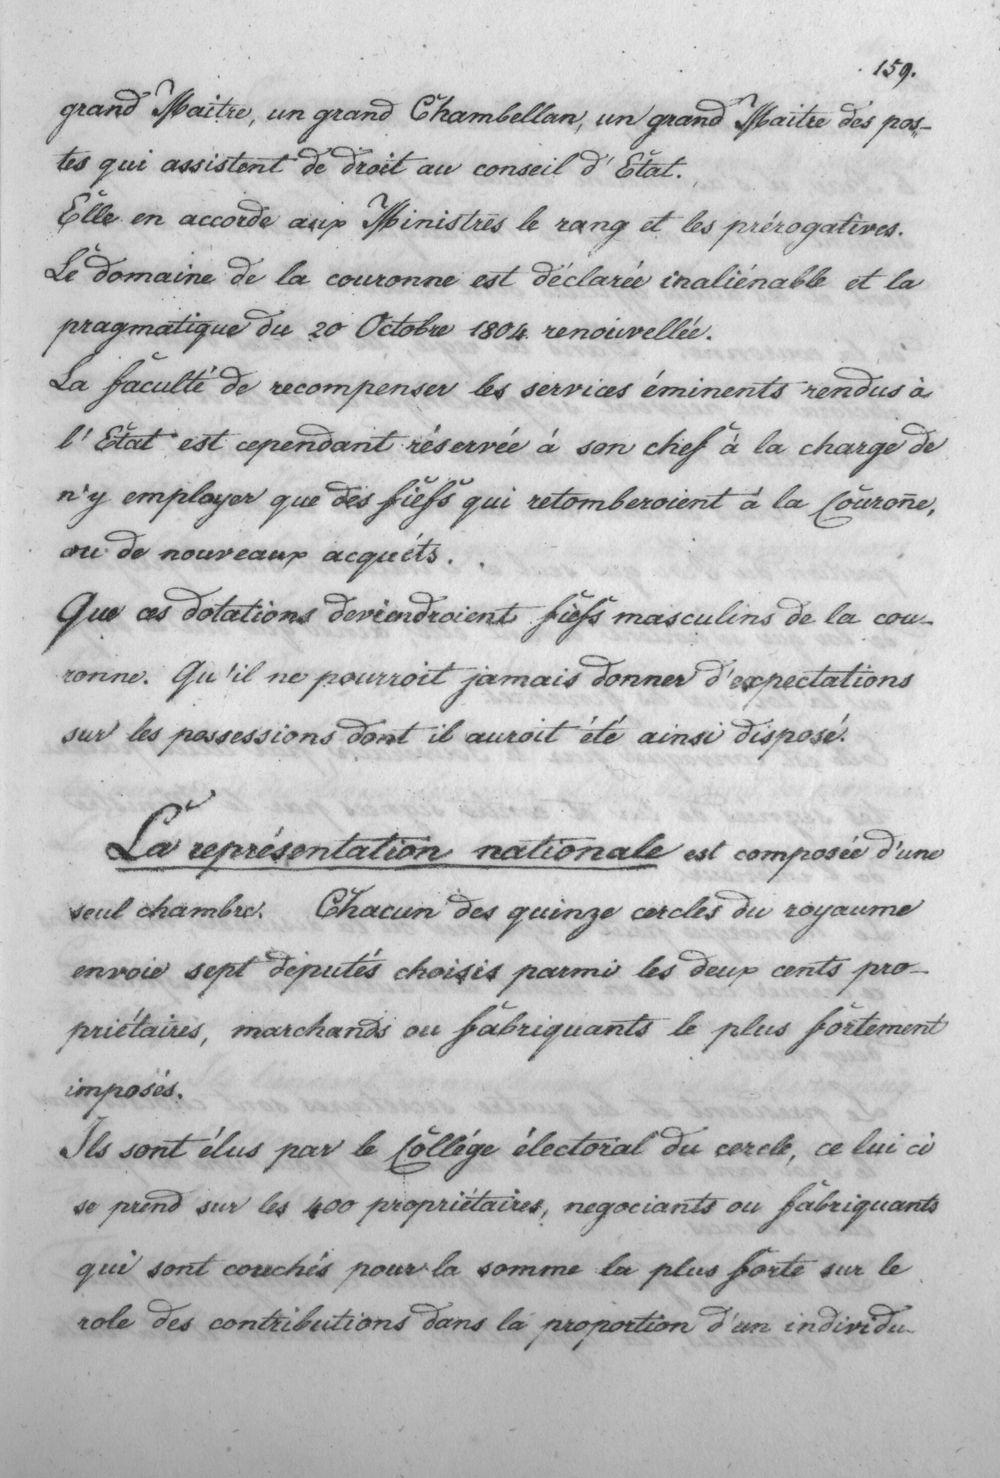 159.
grand Maitre, un grand Chambellan, un grand Maitre des pos-
tes qui assistent de droit au conseil d'Etat.
Elle en accorde aux Ministres le rang et les prérogatives.
Le domaine de la couronne est déclarée inaliénable et la
pragmatique du 20 Octobre 1804 renouvellée.
La faculté de recompenser les services éminents rendus à
l'Etat est cependant réservée à son chef à la charge de
n'y employer que des fiefs qui retomberoient à la Couroñe,
ou de nouveaux acquéts.
Que ces dotations deviendroient fiefs masculins de la cou-
ronne. Qu'il ne pourroit jamais donner d'expectations
sur les possessions dont il auroit été ainsi disposé.
La représentation nationale est composée d'une
seul chambre. Chacun des quinze cercles du royaume
envoie sept députés choisis parmi les deux cents pro-
priétaires, marchands ou fabriquants le plus fortement
imposés.
Ils sont élus par le Collége électoral du cercle, ce lui ci
se prend sur les 400 propriétaires, negociants ou fabriquants
qui sont couchés pour la somme la plus forte sur le
role des contributions dans la proportion d'un individu